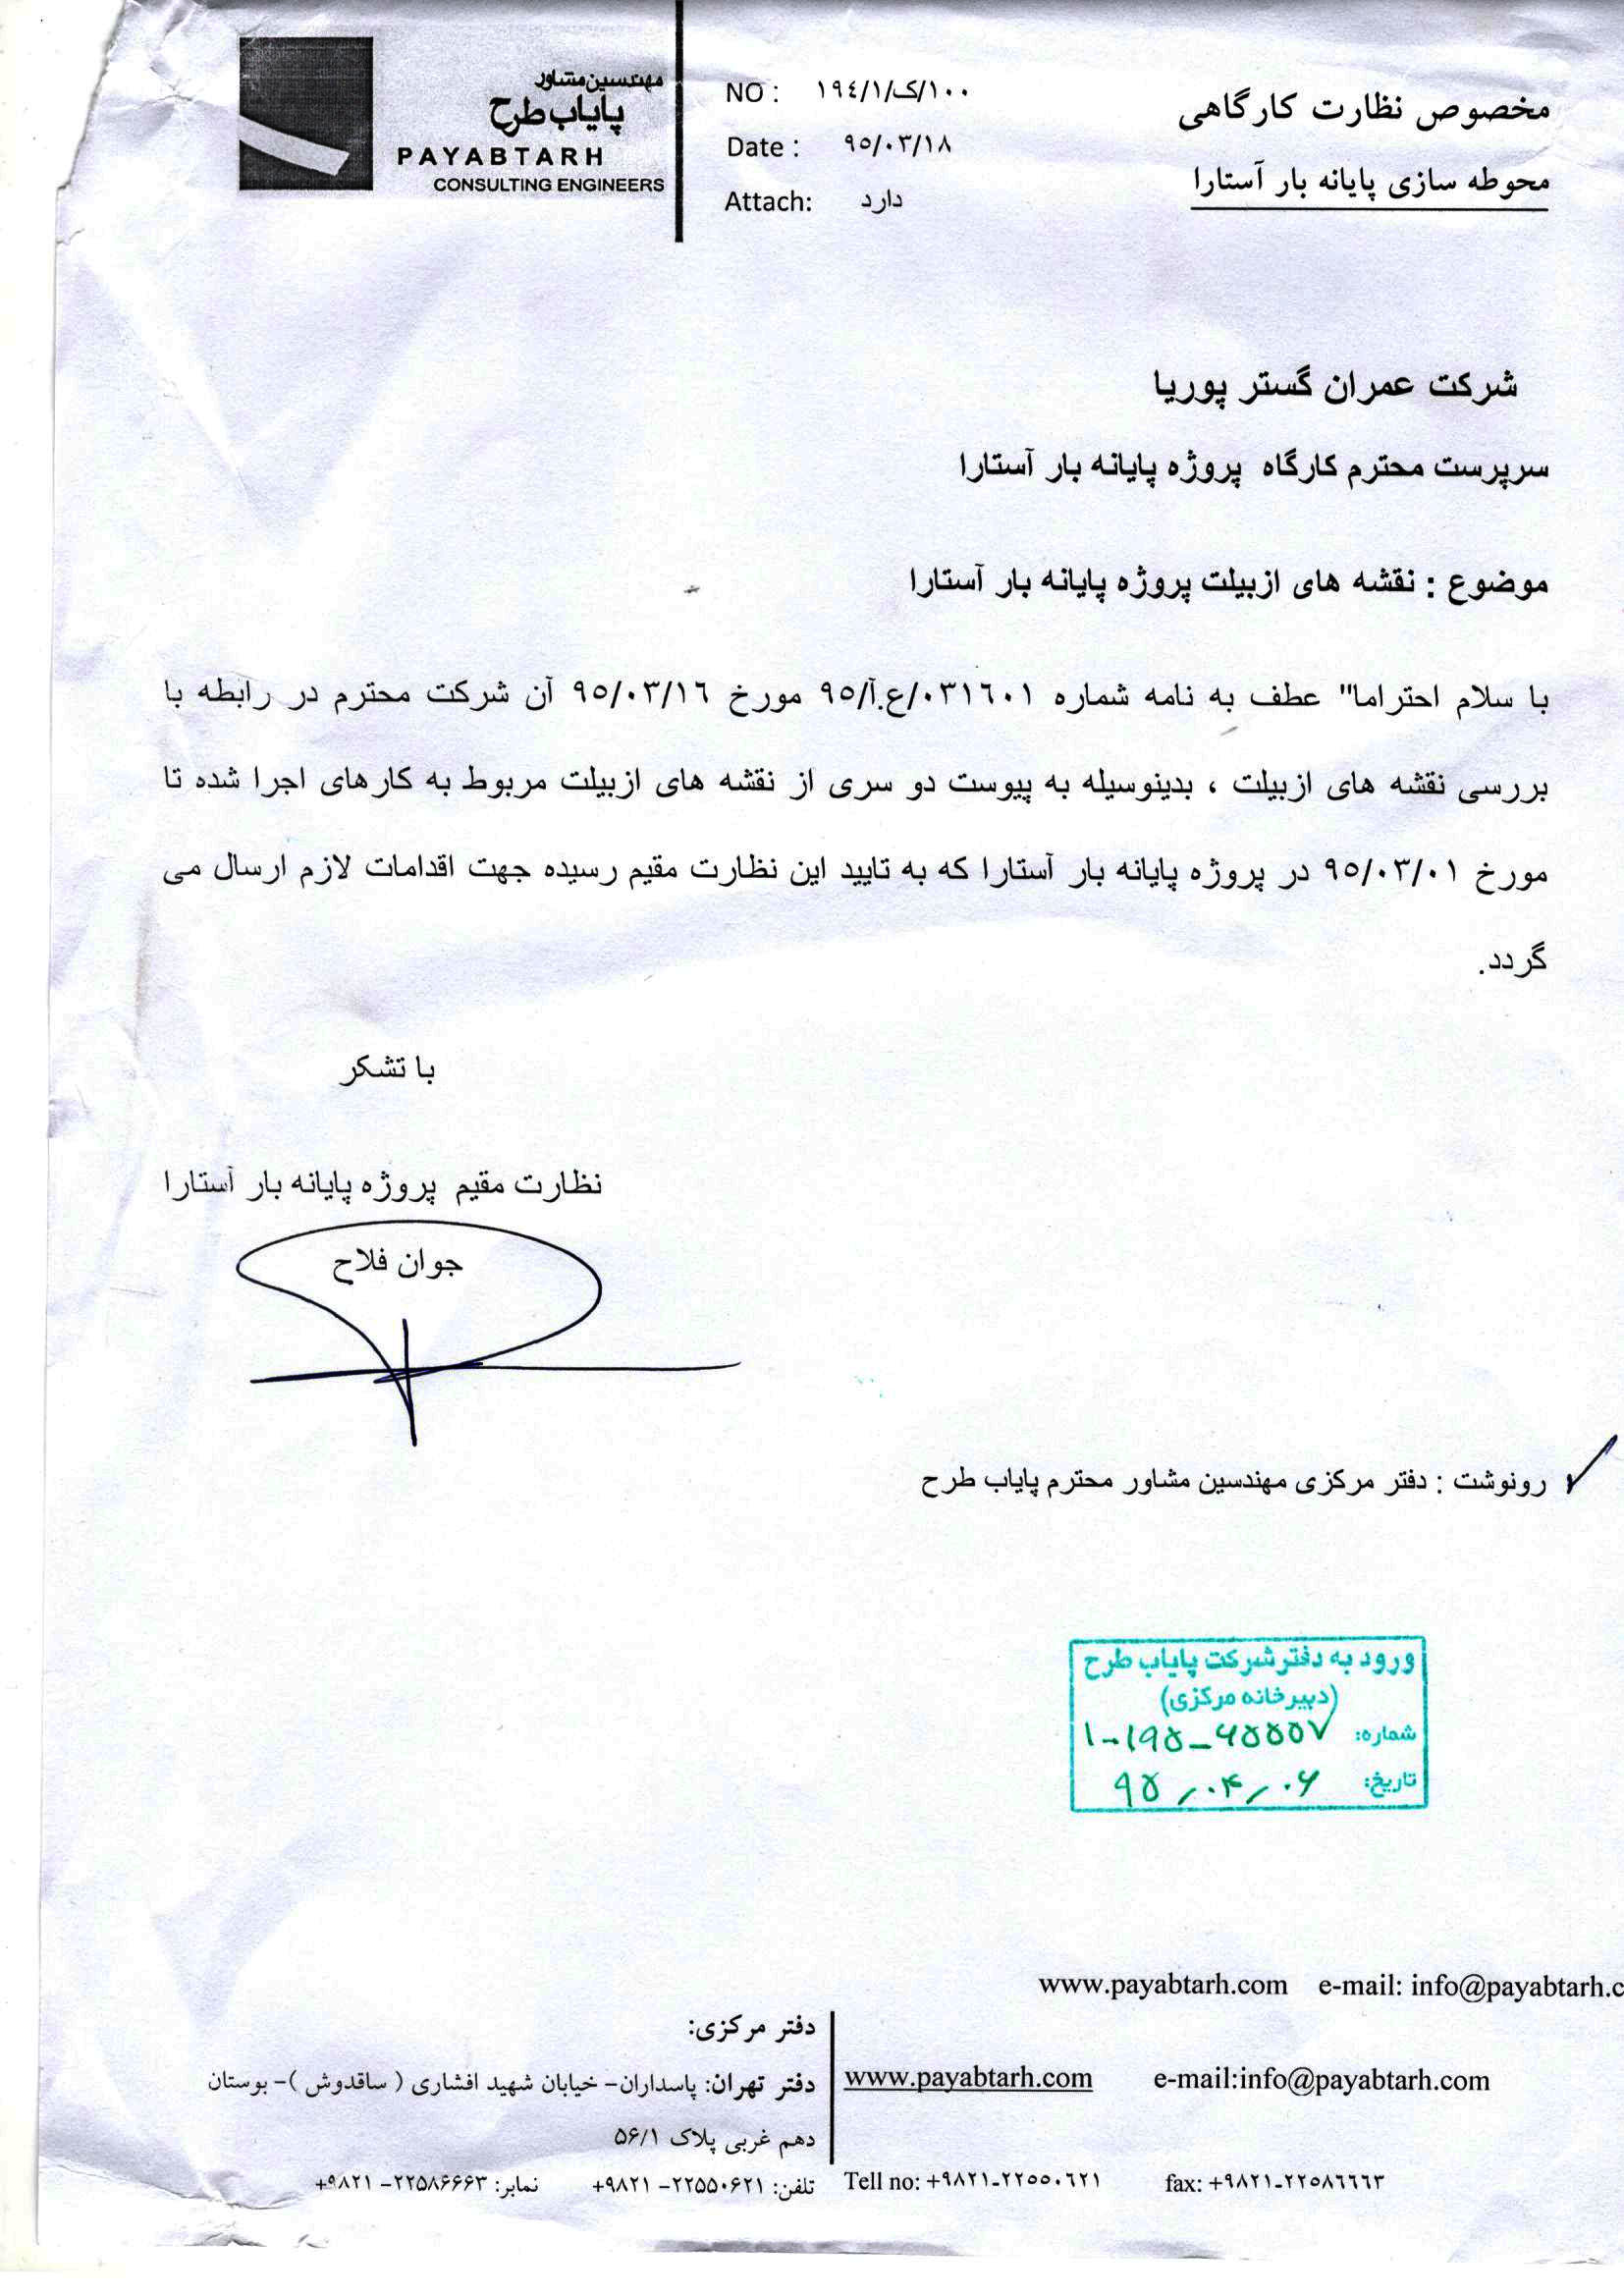 مهندسین مشاور
پایاب طرح
PAYABTARH
CONSULTING ENGINEERS
NO : ۱۹٤/۱/ک/۱۰۰
Date : ۹٥/۰۳/۱۸
Attach: دارد
مخصوص نظارت کارگاهی
محوطه سازی پایانه بار آستارا
شرکت عمران گستر پوریا
سرپرست محترم کارگاه پروژه پایانه بار آستارا
موضوع : نقشه های ازبیلت پروژه پایانه بار آستارا
با سلام احتراما" عطف به نامه شماره ۹٥/ع.آ/۰۳۱٦۰۱ مورخ ۹٥/۰۳/۱٦ آن شرکت محترم در رابطه با
بررسی نقشه های ازبیلت ، بدینوسیله به پیوست دو سری از نقشه های ازبیلت مربوط به کارهای اجرا شده تا
مورخ ۹٥/۰۳/۰۱ در پروژه پایانه بار آستارا که به تایید این نظارت مقیم رسیده جهت اقدامات لازم ارسال می
گردد.
با تشکر
نظارت مقیم پروژه پایانه بار آستارا
جوان فلاح
رونوشت : دفتر مرکزی مهندسین مشاور محترم پایاب طرح
ورود به دفتر شرکت پایاب طرح
(دبیرخانه مرکزی)
شماره: ۱-۱۹۵-۶۵۵۵۷
تاریخ: ۹۵/۰۴/۰۶
www.payabtarh.com e-mail: info@payabtarh.c
دفتر مرکزی:
دفتر تهران: پاسداران- خیابان شهید افشاری ( ساقدوش )- بوستان
دهم غربی پلاک ۵۶/۱
تلفن: ۲۲۵۵۰۶۲۱- ۹۸۲۱+ نمابر: ۲۲۵۸۶۶۶۳- ۹۸۲۱+
www.payabtarh.com e-mail:info@payabtarh.com
Tell no: +۹۸۲۱-۲۲٥٥۰٦۲۱ fax: +۹۸۲۱-۲۲٥۸٦٦٦۳